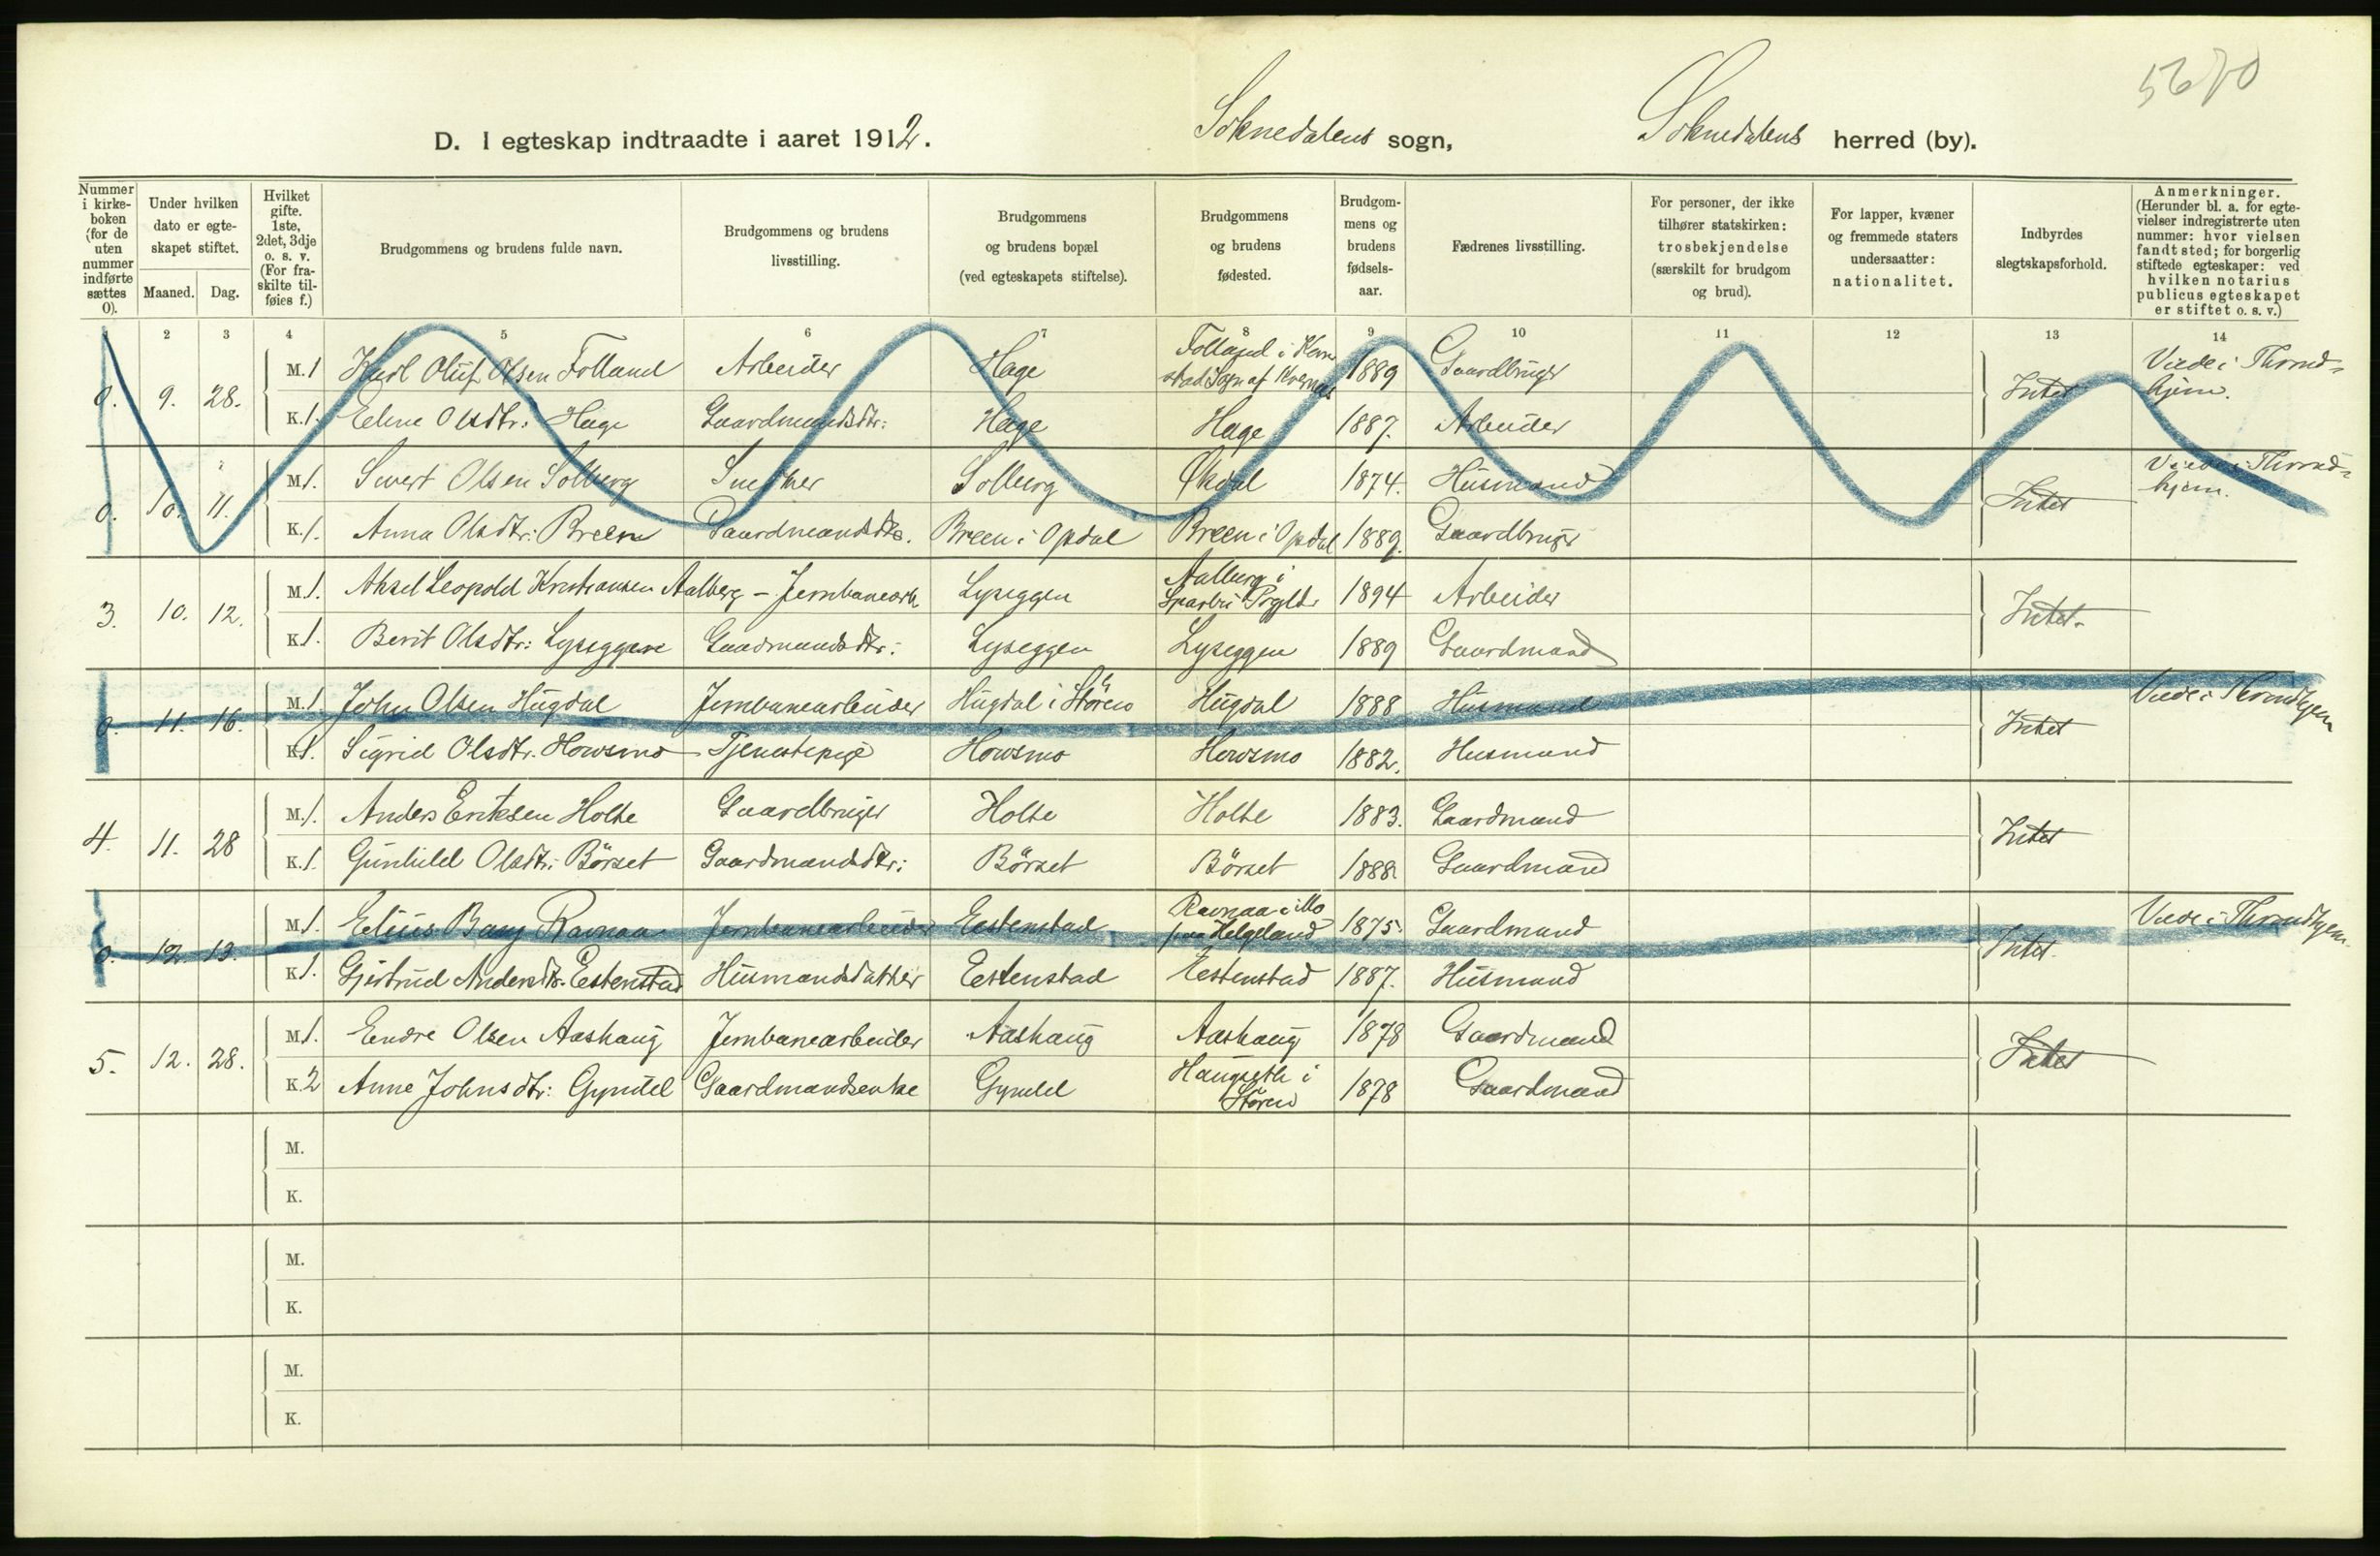 5670
D. I egteskap indtraadte i aaret 1912. Soknedalens sogn, Soknedalens herred (by).
Nummer i kirkeboken (for de uten nummer indførte sættes 0).
Under hvilken dato er egteskapet stiftet.
Maaned. Dag.
Hvilket gifte. 1ste, 2det, 3dje o. s. v. (For fraskilte tilføies f.)
Brudgommens og brudens fulde navn.
Brudgommens og brudens livsstilling.
Brudgommens og brudens bopæl (ved egteskapets stiftelse).
Brudgommens og brudens fødested.
Brudgommens og brudens fødselsaar.
Fædrenes livsstilling.
For personer, der ikke tilhører statskirken: trosbekjendelse (særskilt for brudgom og brud).
For lapper, kvæner og fremmede staters undersaatter: nationalitet.
Indbyrdes slegtskapsforhold.
Anmerkninger. (Herunder bl. a. for egtevielser indregistrerte uten nummer: hvor vielsen fandt sted; for borgerlig stiftede egteskaper: ved hvilken notarius publicus egteskapet er stiftet o. s. v.)
1 2 3 4 5 6 7 8 9 10 11 12 13 14
0. 9. 28. M. 1 Karl Oluf Olsen Folland Arbeider Hage Folland i 1889 Gaardbruger Intet Viede i Thrond-
hjem.
K. 1. Eline Olsdtr: Hage Gaardmandsdtr: Hage Hage 1887. Arbeider
0. 10. 11. M. 1. Sivert Olsen Solberg Snedker Solberg Økdal 1874. Husmand Intet Viede i Thrond-
hjem.
K. 1. Anna Olsdtr: Breen Gaardmandsdtr. Breen i Opdal Breen i Opdal 1889. Gaardbruger
3. 10. 12. M. 1. Aksel Leopold Kristiansen Aalberg - Jernbanearb. Lyseggen Aalberg i
Sparbu Prgld: 1894 Arbeider Intet.
K. 1. Berit Olsdtr: Lyseggen Gaardmandsdtr: Lyseggen Lyseggen 1889 Gaardmand
0. 11. 16. M. 1. John Olsen Hugdal Jernbanearbeider Hugdal i Støren Hugdal 1888 Husmand Intet Viede i Throndhjem
K. 1. Sigrid Olsdtr. Howsmo Tjenestepige Howsmo Howsmo 1882. Husmand
4. 11. 28 M. 1. Anders Eriksen Holte Gaardbruger Holte Holte 1883. Gaardmand Intet
K. 1. Gunhild Olsdtr: Börset Gaardmandsdtr: Börset Börset 1888 Gaardmand
0. 12. 13. M. 1. Elius Ravnaa Jernbanearbeider Eestenstad Ravnaa i Mo
paa Helgeland 1875. Gaardmand Intet. Viede i Throndhjem.
K. 1. Gjertrud Andersdtr. Eestenstad Husmandsdatter Eestenstad Eestenstad 1887. Husmand
5. 12. 28. M. 1. Endre Olsen Aashaug Jernbanearbeider Aashaug Aashaug 1878 Gaardmand Intet
K. 2 Anne Johnsdtr: Gyndel Gaardmandsenke Gyndel Haugseth i
Støren 1878 Gaardmand
M.
K.
M.
K.
M.
K.